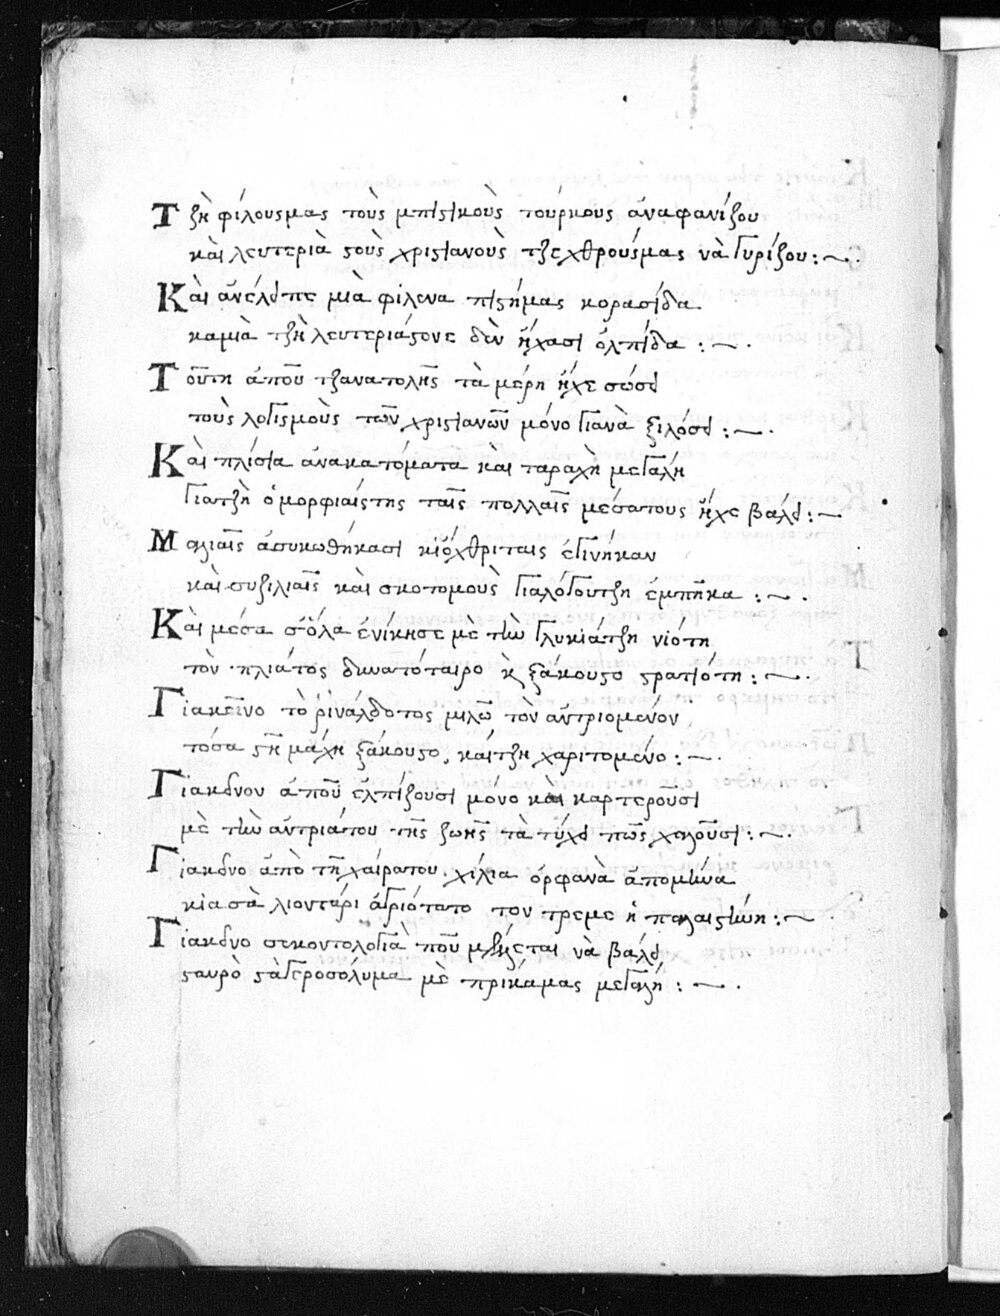 Τζὴ φίλουσμας τοὺς μπιστικοὺς τούρκους ἀναφανίζου
καὶ λευτεριὰ στοὺς χριστιανοὺς τζεχθρούσμας νὰ γυρίζου :~.
Καὶ ἀνέλειπε μιὰ φίλενα πιστήμας κορασίδα
καμιὰ τζὴ λευτεριάστονε δὲν ἤχασι ὀλπίδα :~.
Τούτη ἀποῦ τζανατολῆς τὰ μέρη ἤχε σώσει
τοὺς λογισμοὺς τῶν χριστιανῶν μόνο γιανὰ ξιλόσει :~.
Καὶ πλίσια ἀνακατόματα καὶ ταραχὴ μεγάλη
γιατζὴ ὀμορφιαίστης ταῖς πολλαῖς μέσατους ἤχε βάλει :~
Μαλιαῖς ἀσυκωθήκασι κιὄχθριταις ἐγινήκαν
καὶ συξιλιαῖς καὶ σκοτομοὺς γιαλόγουτζη ἐμπῆκα :~.
Καὶ μέσα σ' ὅλα ἐνίκησε μὲ τὴν γλυκιάτζη νιότη
τὸν πλιάτος δυνατόταιρο κ ξάκουστο στρατιότη :~.
Γιακεῖνο τὸ ρινάλδο τος μιλῶ τὸν ἀντριομενόν
τόσα στὴ μάχη ξάκουστο, καίτζη χαριτομένο :~.
Γιακεινον ἀποῦ ἐλπίζουσι μόνο καὶ καρτεροῦσι
μὲ τὴν ἀντριάτου τῆς ζωῆς τὰ τύχει πῶς χαλοῦσι :~.
Γιακεινο ἀπὸ τὴ χαίρατου χίλια ὀρφανὰ ἀπομεινα
κιασὰ λιοντάρι ἀγριότατο τον τρεμε ἡ παλαιστίνη :~.
Γιακεινο σεκοντολογιὰ ποῦ μέλεται νὰ βάλει
σταυρὸ στὰγεροσολυμα μὲ πρικάμας μεγάλη :~.